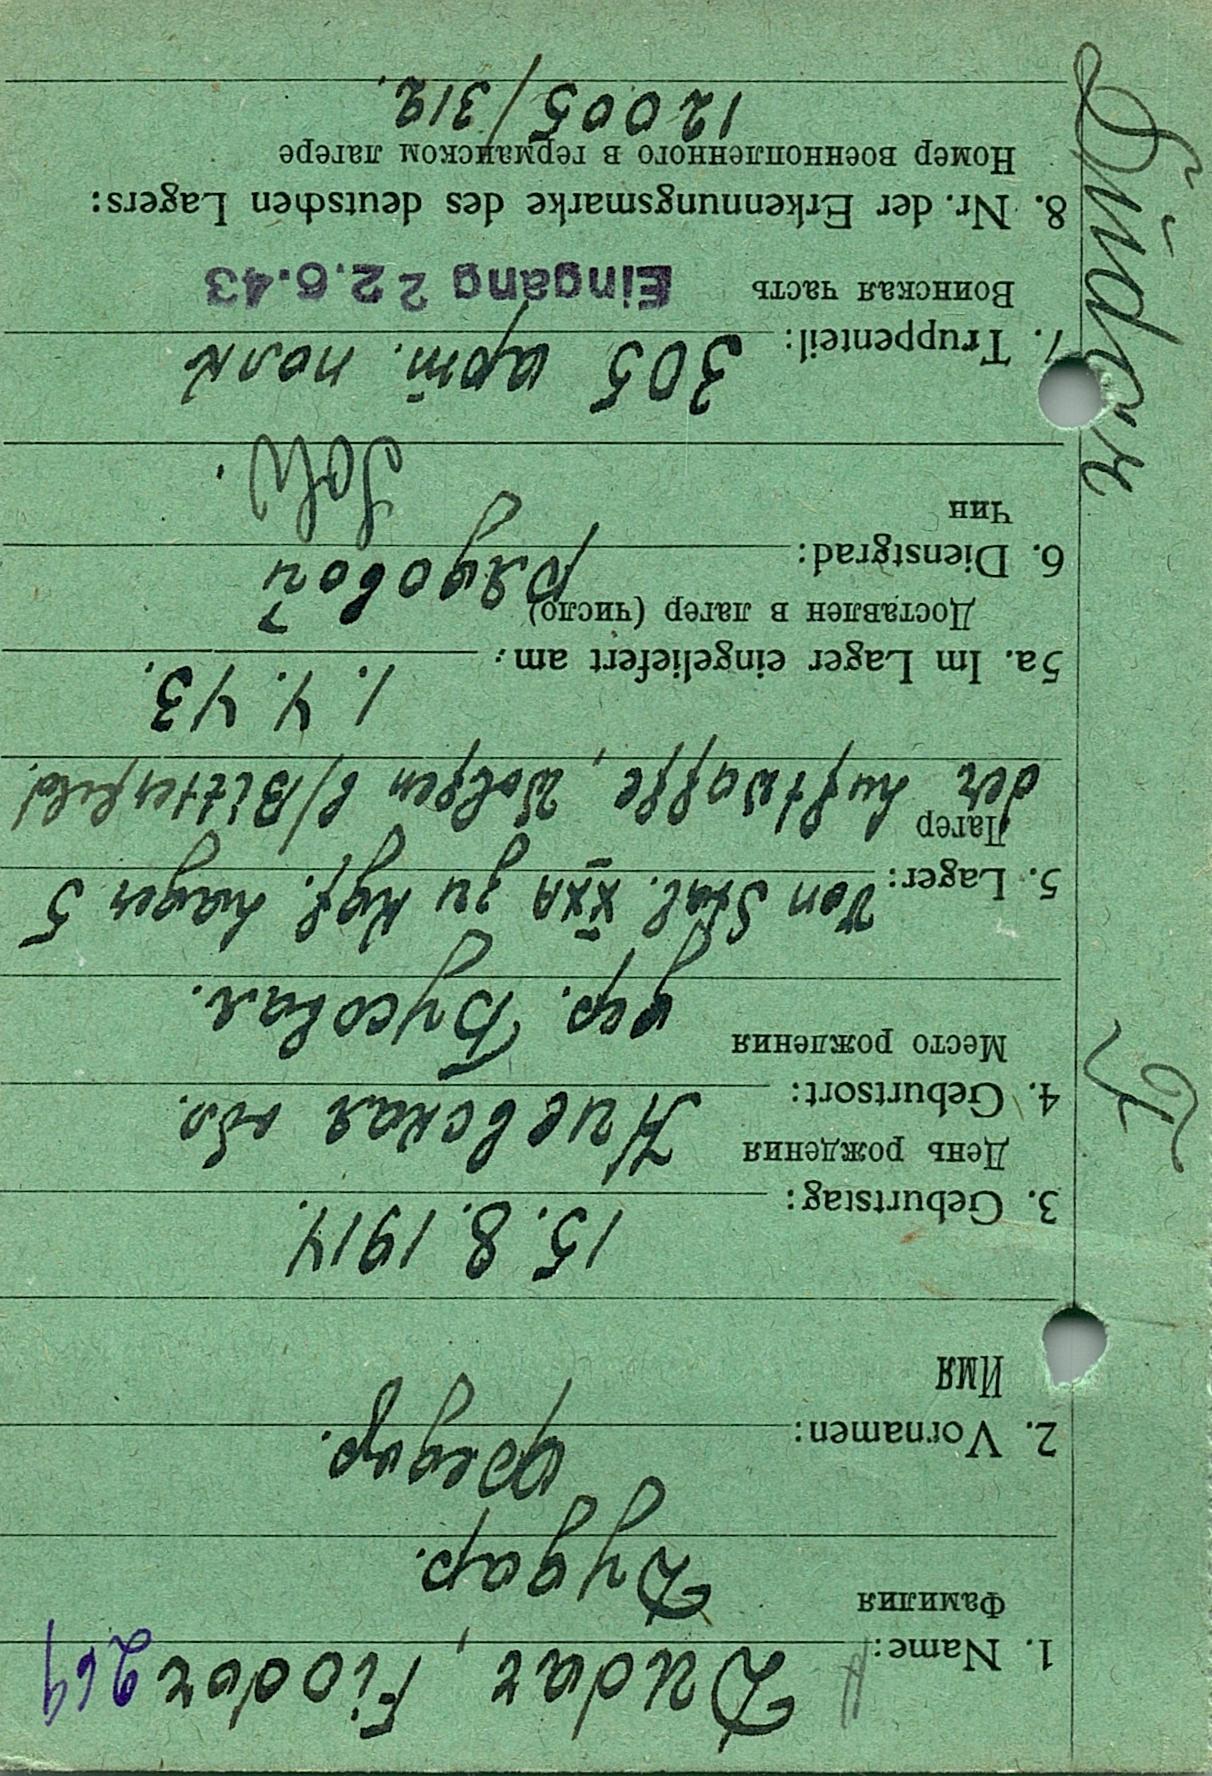 1. Name: Dudar, Fiodor 264
Фамилия
Дудар.
2. Vornamen: Федор.
Имя
3. Geburtstag: 15.8.1914.
День рождения
Киевская обл.
4. Geburtsort:
Место рождения
дер. Бусовая.
5. Lager: Von Stal. XXA zu Kgf. Lager 5
Лагер
der Luftwaffe, Wolfen b/Bitterfeld.
5a. Im Lager eingeliefert am: 1.4.43.
Доставлен в лагер (число)
6. Dienstgrad: рядовой
Чин
Sold.
7. Truppenteil: 305 арт. полк
Воинская часть
Eingang 22.6.43
8. Nr. der Erkennungsmarke des deutschen Lagers:
Номер военнопленного в германском лагере
12005/312.
Dudar
F